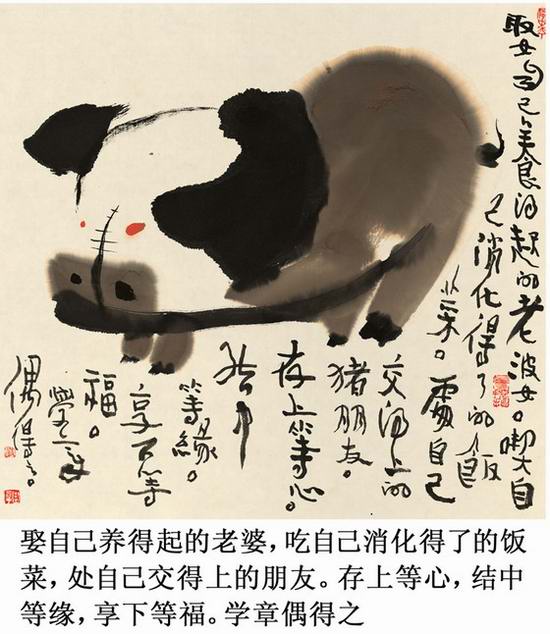 娶自己養得起的老婆。喫自
己消化得了的飯
菜。處自己
交得上的
猪朋友。
存上等心。
結中
等緣。
享下等
福。
學章
偶得之。
娶自己养得起的老婆，吃自己消化得了的饭
菜，处自己交得上的朋友。存上等心，结中
等缘，享下等福。学章偶得之